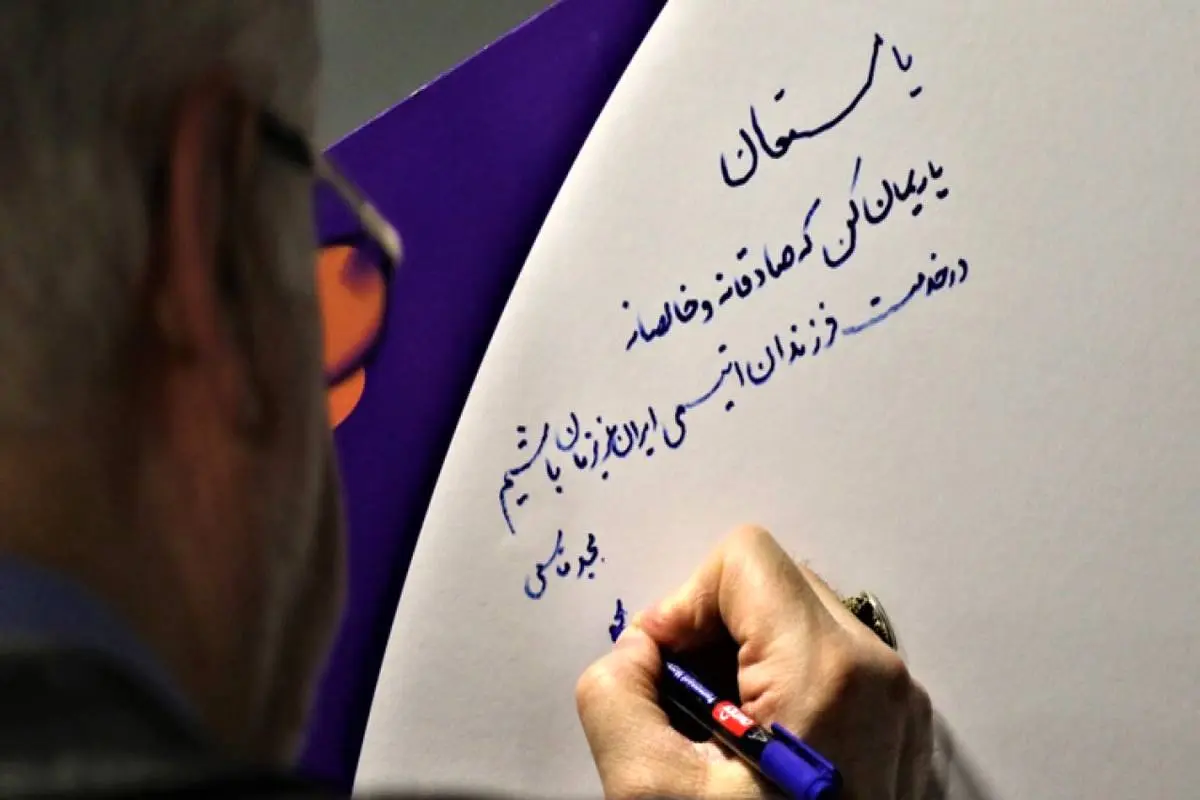 یا مستعان
یاریمان کن که صادقانه و خالصانه
در خدمت فرزندان اتیسمی ایران عزیزمان باشیم
مجید قاسمی
Permanent